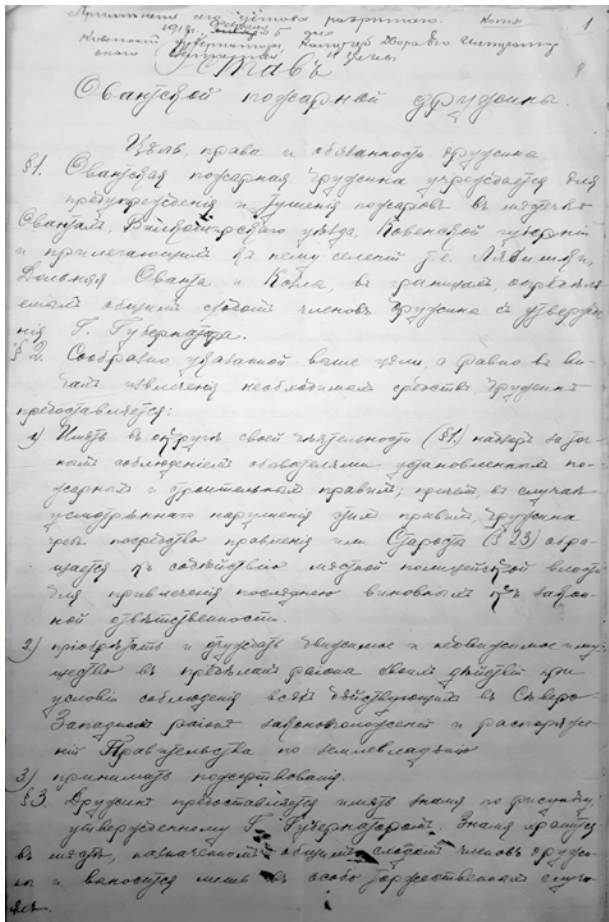 Копія 1
1913 г. 5 дня
Уставъ
Овантской пожарной дружины.
Цѣль, права и обязанности дружины.
§1. Овантская пожарная дружина учреждается для
предупрежденія и тушенія пожаровъ въ мѣстечкѣ
Овантахъ, Вилкомирскаго уѣзда, Ковенской губерніи
и прилегающимъ къ нему селеній т.е.
Дольная Ованта и въ границахъ, опредѣля-
емыхъ общимъ членовъ дружины съ утвержде-
нія Г. Губернатора.
§ 2. Сообразно указанной выше цѣли, а равно въ ви-
дахъ изысканія необходимыхъ средствъ, дружинѣ
предоставляется:
1) Имѣть въ округѣ своей дѣятельности (§1) надзоръ за точ-
нымъ соблюденіемъ обывателями установленныхъ по-
жарныхъ и строительныхъ правилъ; причемъ, въ случаѣ
усмотрѣннаго нарушенія этихъ правилъ, дружина
чрезъ посредство правленія или Старосты (§ 23) обра-
щается къ содѣйствію мѣстной полицейской власти
для привлеченія послѣднею виновныхъ къ закон-
ной отвѣтственности.
2) пріобрѣтать и отчуждать движимое и недвижимое иму-
щество въ предѣлахъ района своихъ дѣйствій при
условіи соблюденія всѣхъ дѣйствующихъ въ Сѣверо-
Западномъ районѣ законоположеній и распоряже-
ній Правительства по землевладѣнію
3) принимать пожертвованія.
§3. Дружинѣ предоставляется имѣть знамя по рисунку,
утвержденному Г. Губернаторомъ. Знамя хранится
въ мѣстѣ, назначенномъ общимъ членовъ дружи-
ны и выносится лишь въ особо торжественныхъ случа-
яхъ.